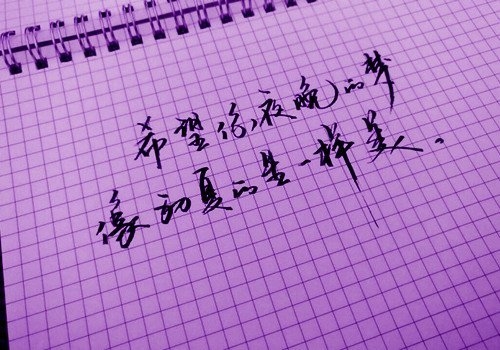 希望你夜晚的梦
像初夏的星一样美。